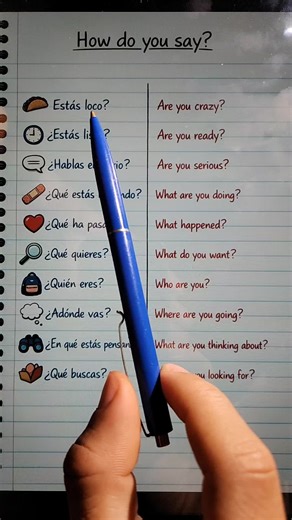 How do you say?
Estás loco? Are you crazy?
¿Estás Are you ready?
¿Hablas Are you serious?
¿Qué estás What are you doing?
¿Qué ha What happened?
¿Qué quieres? What do you want?
¿Quién eres? Who are you?
¿Adónde vas? Where are you going?
¿En qué estás What are you thinking about?
¿Qué buscas? you looking for?